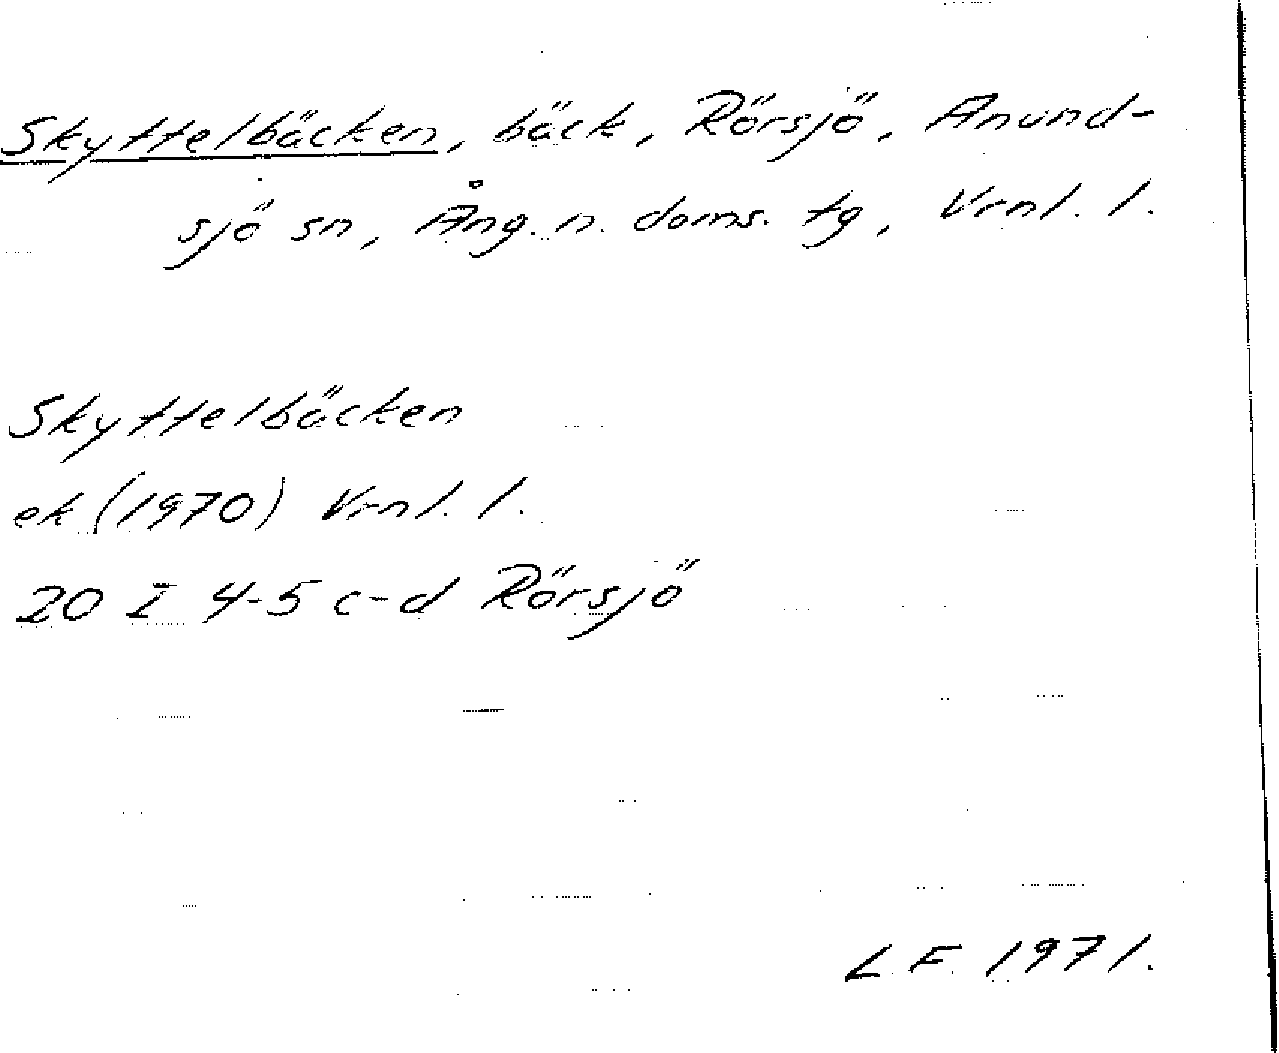 Skyttelbäcken, bäck, Rörsjö, Anund-
sjö sn, Ång. n. doms. tg, Vrnl. l.
Skyttelbäcken
ek (1970) Vrnl. l.
20 I 4-5 c-d Rörsjö
L F 1971.